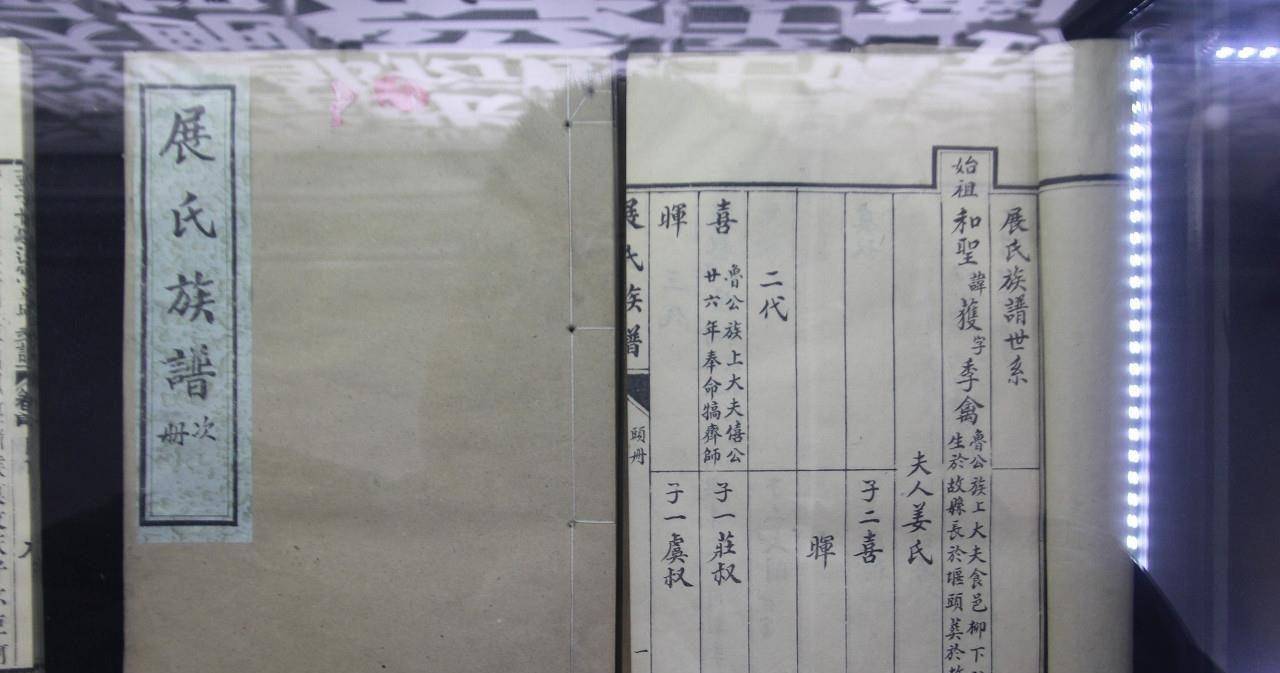 展氏族譜
次冊
展氏族譜世系
始祖
和聖諱獲字季禽
魯公族上大夫食邑柳下
生於故縣長於堰頭葬於
夫人姜氏
子二喜
暉
二代
喜
魯公族上大夫僖公
廿六年奉命犒齊師
子一莊叔
暉
子一虞叔
展氏族譜
頭冊
一